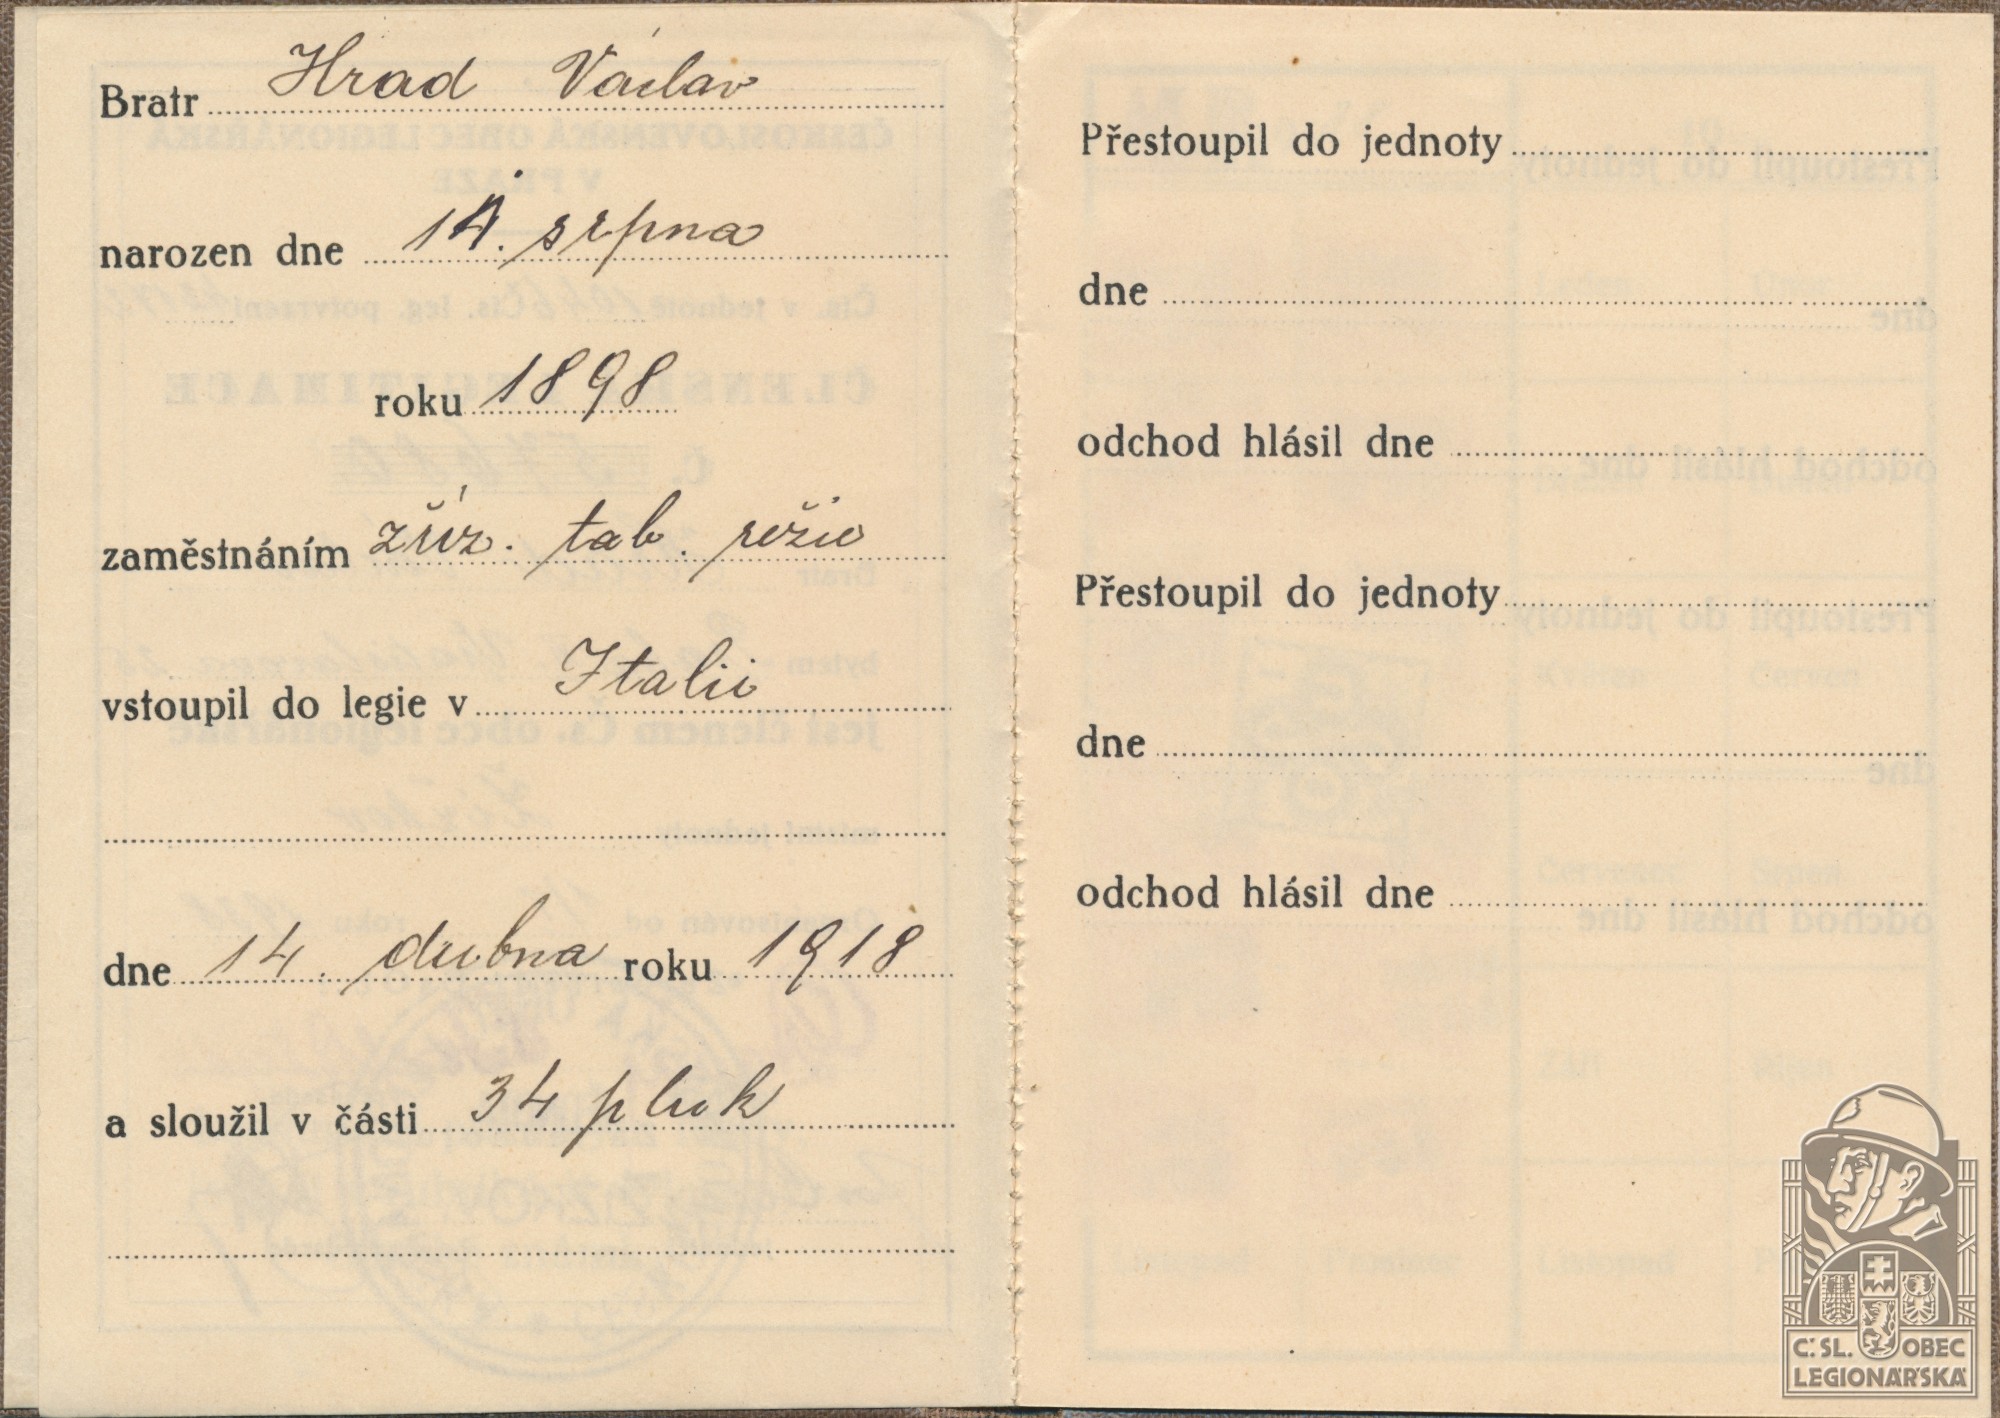 Bratr Hrad Václav
narozen dne 14. srpna
roku 1898
zaměstnáním zříz. tab. režie
vstoupil do legie v Italii
dne 14. dubna roku 1918
a sloužil v části 34 pluk
Přestoupil do jednoty
dne
odchod hlásil dne
Přestoupil do jednoty
dne
odchod hlásil dne
Č.SL. OBEC
LEGIONÁŘSKÁ